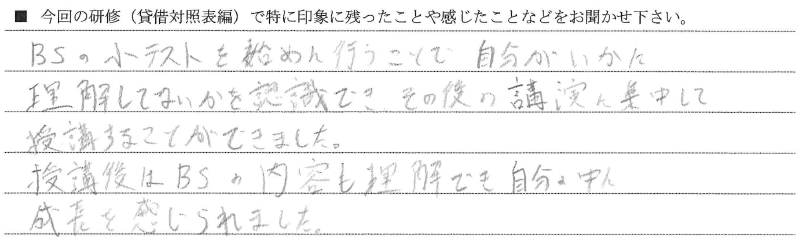 ■ 今回の研修（貸借対照表編）で特に印象に残ったことや感じたことなどをお聞かせ下さい。
BSの小テストを始めに行うことで 自分がいかに
理解してないかを認識でき、その後の講演に集中して
授講することができました。
授講後はBSの内容も理解でき自分の中に
成長を感じられました。